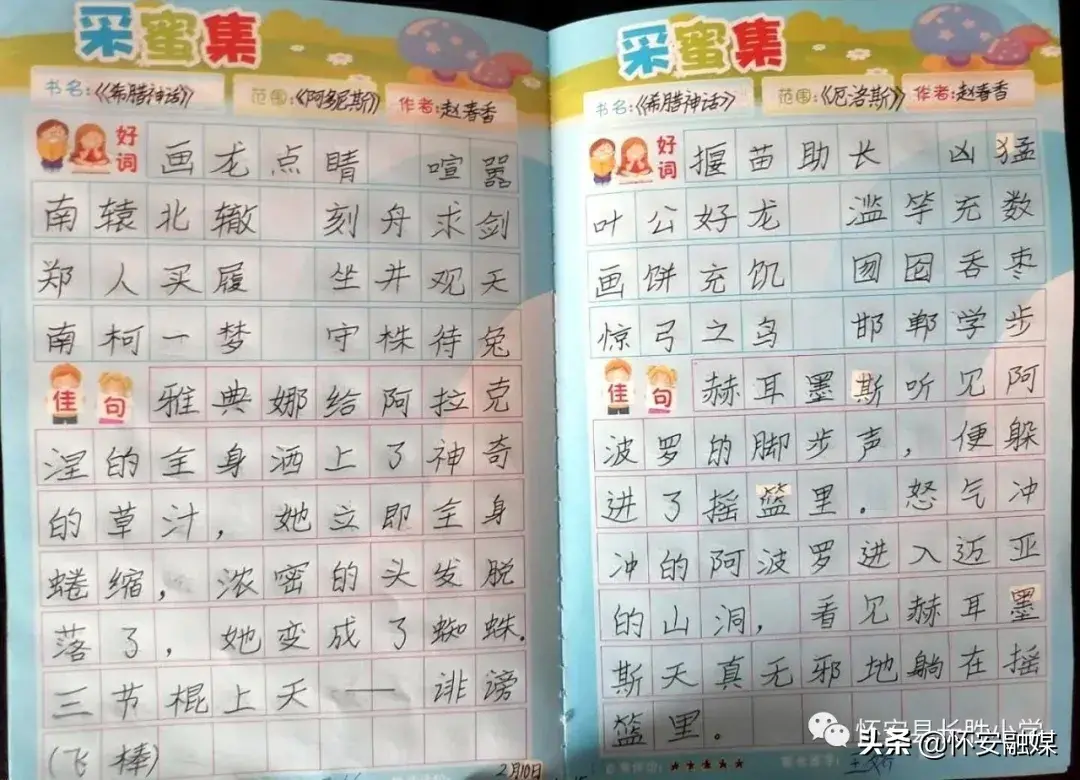 采蜜集
书名:《希腊神话》 范围:《阿多尼斯》 作者:赵春香
好词 画龙点睛 喧嚣
南辕北辙 刻舟求剑
郑人买履 坐井观天
南柯一梦 守株待兔
佳句 雅典娜给阿拉克
涅的全身洒上了神奇
的草汁,她立即全身
蜷缩,浓密的头发脱
落了,她变成了蜘蛛.
三节棍上天——诽谤
(飞棒)
2月10日
采蜜集
书名:《希腊神话》 范围:《厄洛斯》 作者:赵春香
好词 揠苗助长 凶猛
叶公好龙 滥竽充数
画饼充饥 囫囵吞枣
惊弓之鸟 邯郸学步
佳句 赫耳墨斯听见阿
波罗的脚步声,便躲
进了摇篮里。怒气冲
冲的阿波罗进入迈亚
的山洞,看见赫耳墨
斯天真无邪地躺在摇
篮里。
怀安县长胜小学
头条 @怀安融媒
★★★★★